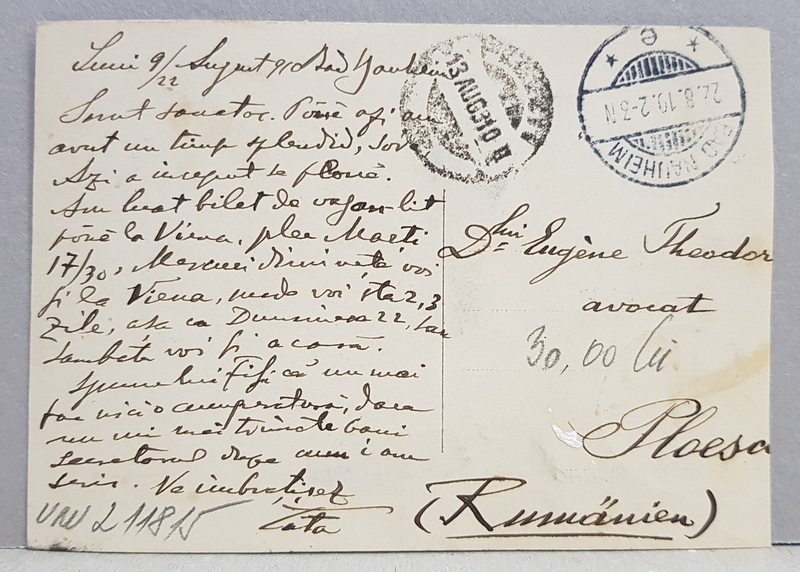 Luni 9/22 August 910 Bad Nauheim
Sunt sanatos. Pónĕ azi am
avut un timp splendid, dar
Azi a inceput se plouĕ.
Am luat bilet de vagon-lit
pónĕ la Viena, plec Marti
17/30, Mercuri dimineţă voi
fi la Viena, unde voi sta 2, 3
zile, asa ca Duminica 22, sau
Sambătă voi fi acasă.
Spune lui Fifi că nu mai
fac nicio cumperatură, daca
nu mi mai trimete bani
secretarul dupe cum i am
scris. Va imbratisez
Tata
UNV 211815
13 AUG 910
BAD NAUHEIM
22.8.10. 2-3 N
e
Dlui
Dr Eugène Theodor
avocat
30,00 lei
Ploesci
(Rumänien)